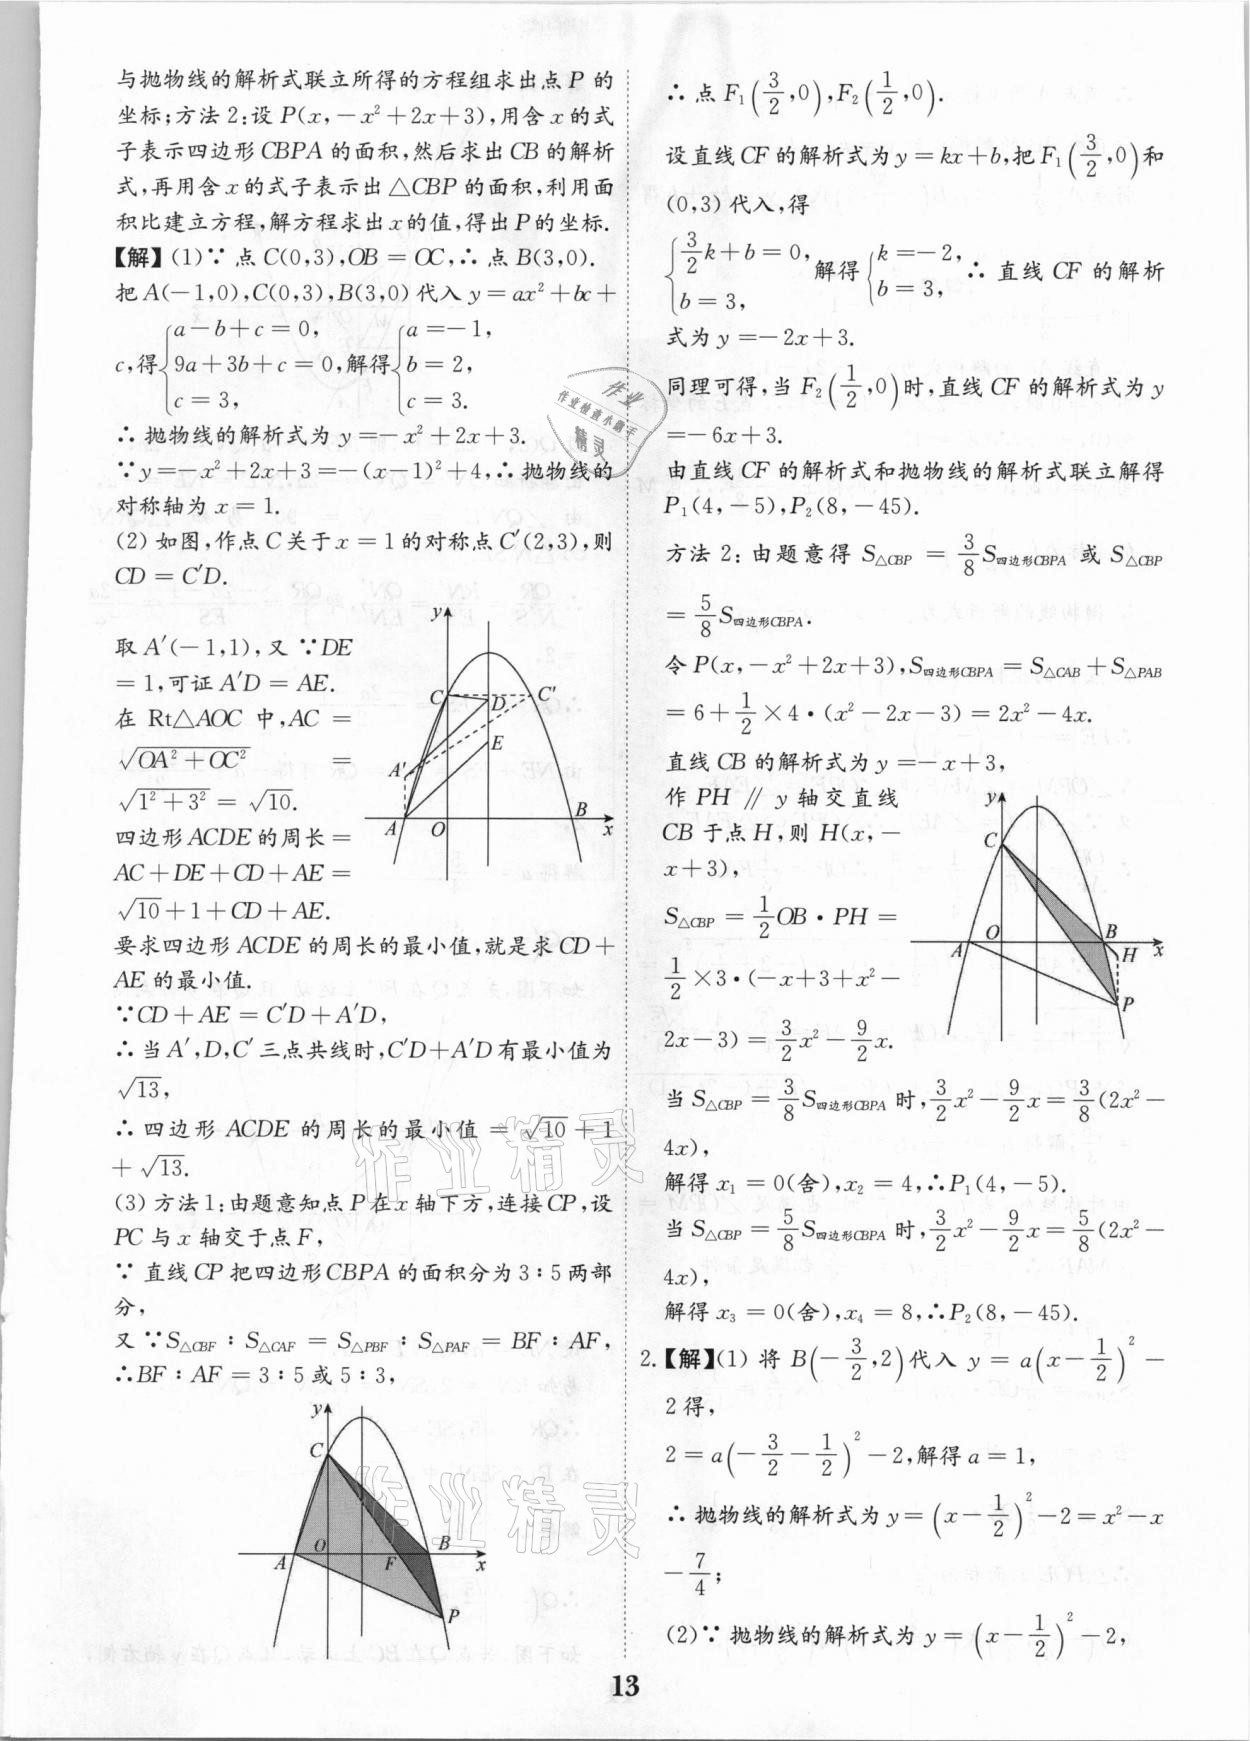 与抛物线的解析式联立所得的方程组求出点 P 的
坐标;方法 2:设 P(x,－x²＋2x＋3),用含 x 的式
子表示四边形 CBPA 的面积,然后求出 CB 的解析
式,再用含 x 的式子表示出 △CBP 的面积,利用面
积比建立方程,解方程求出 x 的值,得出 P 的坐标.
【解】(1)∵ 点 C(0,3),OB＝OC,∴ 点 B(3,0).
把 A(－1,0),C(0,3),B(3,0) 代入 y＝ax²＋bx＋
c,得{a－b＋c＝0, 9a＋3b＋c＝0, c＝3, 解得{a＝－1, b＝2, c＝3.
∴ 抛物线的解析式为 y＝－x²＋2x＋3.
∵y＝－x²＋2x＋3＝－(x－1)²＋4,∴ 抛物线的
对称轴为 x＝1.
(2) 如图,作点 C 关于 x＝1 的对称点 C′(2,3),则
CD＝C′D.
取 A′(－1,1),又 ∵DE
＝1,可证 A′D＝AE.
在 Rt△AOC 中,AC＝
√(OA²＋OC²) ＝
√(1²＋3²)＝√10.
四边形 ACDE 的周长＝
AC＋DE＋CD＋AE＝
√10＋1＋CD＋AE.
y
C
C′
D
E
A′
A
O
B
x
要求四边形 ACDE 的周长的最小值,就是求 CD＋
AE 的最小值.
∵CD＋AE＝C′D＋A′D,
∴ 当 A′,D,C′ 三点共线时,C′D＋A′D 有最小值为
√13,
∴ 四边形 ACDE 的周长的最小值＝√10＋1
＋√13.
(3) 方法 1:由题意知点 P 在 x 轴下方,连接 CP,设
PC 与 x 轴交于点 F,
∵ 直线 CP 把四边形 CBPA 的面积分为 3∶5 两部
分,
又 ∵S△CBF∶S△CAF＝S△PBF∶S△PAF＝BF∶AF,
∴BF∶AF＝3∶5 或 5∶3,
y
C
A
O
F
B
x
P
∴ 点 F₁(3/2,0),F₂(1/2,0).
设直线 CF 的解析式为 y＝kx＋b,把 F₁(3/2,0) 和
(0,3) 代入,得
{3/2k＋b＝0, b＝3, 解得{k＝－2, b＝3, ∴ 直线 CF 的解析
式为 y＝－2x＋3.
同理可得,当 F₂(1/2,0) 时,直线 CF 的解析式为 y
＝－6x＋3.
由直线 CF 的解析式和抛物线的解析式联立解得
P₁(4,－5),P₂(8,－45).
方法 2: 由题意得 S△CBP＝3/8S四边形CBPA 或 S△CBP
＝5/8S四边形CBPA.
令 P(x,－x²＋2x＋3),S四边形CBPA＝S△CAB＋S△PAB
＝6＋1/2×4·(x²－2x－3)＝2x²－4x.
直线 CB 的解析式为 y＝－x＋3,
作 PH∥y 轴交直线
CB 于点 H,则 H(x,－
x＋3),
S△CBP＝1/2OB·PH＝
1/2×3·(－x＋3＋x²－
2x－3)＝3/2x²－9/2x.
y
C
A
O
B
H
x
P
当 S△CBP＝3/8S四边形CBPA 时,3/2x²－9/2x＝3/8(2x²－
4x),
解得 x₁＝0(舍),x₂＝4,∴P₁(4,－5).
当 S△CBP＝5/8S四边形CBPA 时,3/2x²－9/2x＝5/8(2x²－
4x),
解得 x₃＝0(舍),x₄＝8,∴P₂(8,－45).
2.【解】(1) 将 B(－3/2,2) 代入 y＝a(x－1/2)²－
2 得,
2＝a(－3/2－1/2)²－2,解得 a＝1,
∴ 抛物线的解析式为 y＝(x－1/2)²－2＝x²－x
－7/4;
(2)∵ 抛物线的解析式为 y＝(x－1/2)²－2,
13
作业
作业检查小帮手
精灵
作业精灵
作业精灵